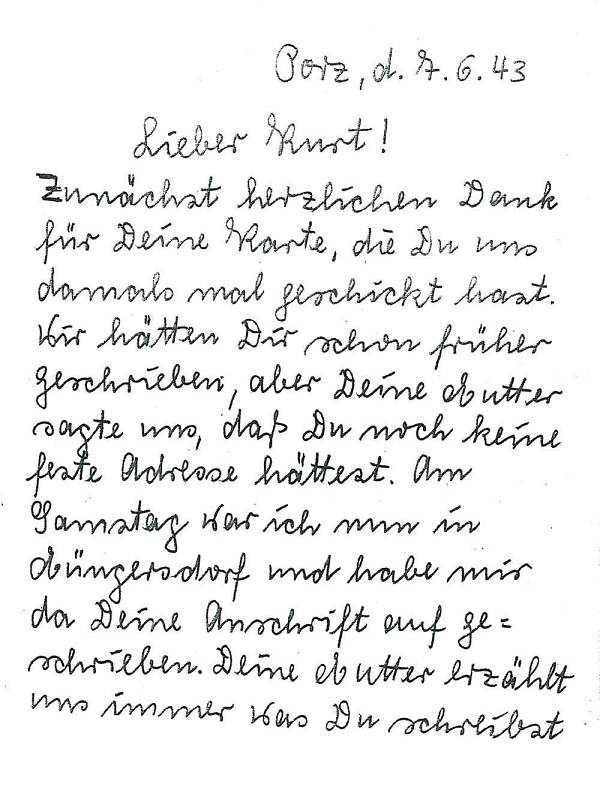 Porz, d. 7. 6. 43
Lieber Kurt!
Zunächst herzlichen Dank
für Deine Karte, die Du uns
damals mal geschickt hast.
Wir hätten Dir schon früher
geschrieben, aber Deine Mutter
sagte uns, daß Du noch keine
feste Adresse hättest. Am
Samstag war ich nun in
Müngersdorf und habe mir
da Deine Anschrift auf ge=
schrieben. Deine Mutter erzählt
uns immer was Du schreibst